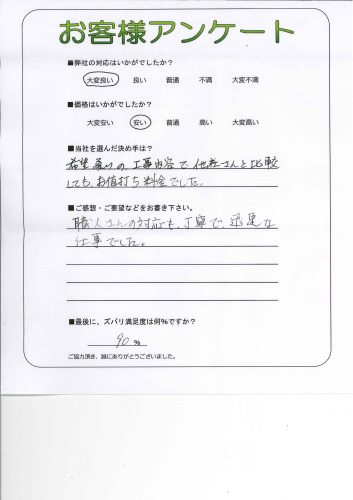 お客様アンケート
■弊社の対応はいかがでしたか?
大変良い 良い 普通 不満 大変不満
■価格はいかがでしたか?
大変安い 安い 普通 高い 大変高い
■当社を選んだ決め手は?
希望通りの、工事内容で他社さんと比較
しても、お値打ち料金でした。
■ご感想・ご要望などをお書き下さい。
職人さんの対応も、丁寧で、迅速な
仕事でした。
■最後に、ズバリ満足度は何%ですか?
90 %
ご協力頂き、誠にありがとうございました。